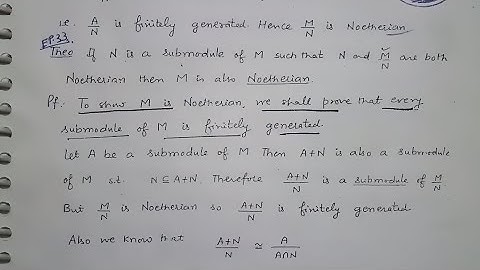 i.e. A/N is finitely generated. Hence M/N is Noetherian.
EP.33
Theo If N is a submodule of M such that N and M/N are both
Noetherian then M is also Noetherian.
Pf:- To show M is Noetherian, we shall prove that every
submodule of M is finitely generated.
Let A be a submodule of M Then A+N is also a submodule
of M s.t. N ⊆ A+N. Therefore A+N/N is a submodule of M/N
But M/N is Noetherian so A+N/N is finitely generated
Also we know that A+N/N ≃ A/A∩N